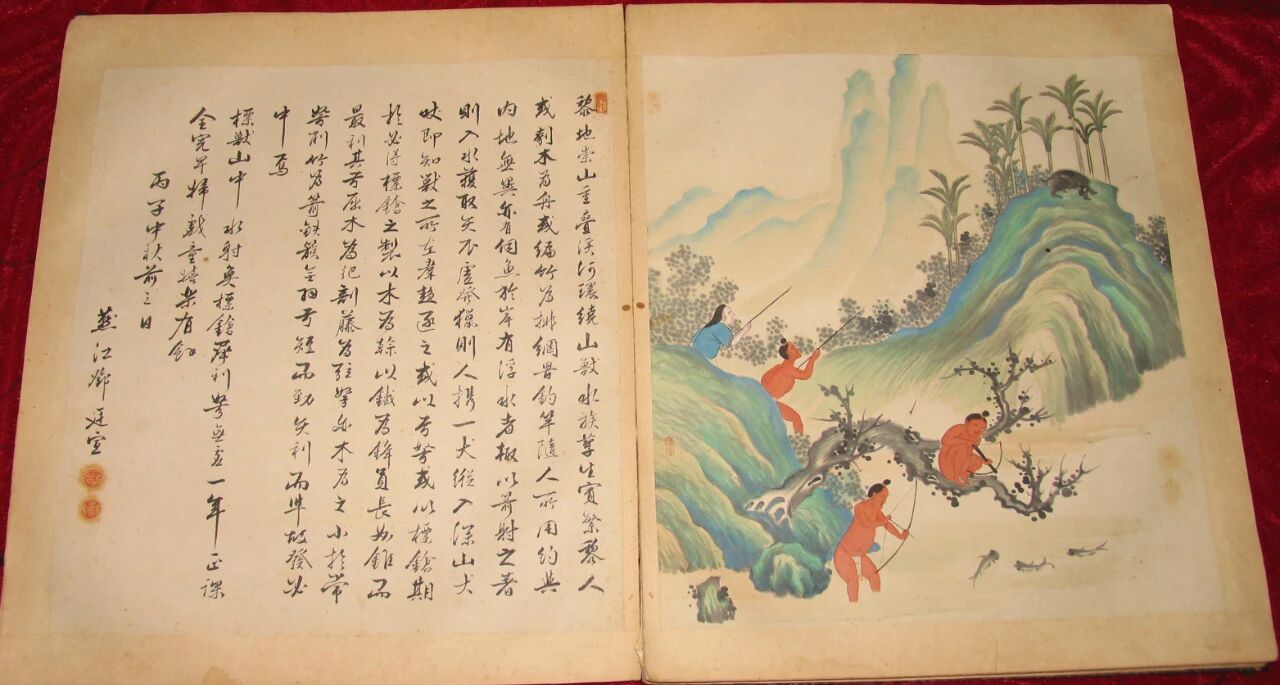 黎地崇山重疊溪河環繞山獸水族孳生實繁黎人
或刳木為舟或編竹為排網罟釣竿隨人所用約與
內地無異亦有伺魚於岸有浮水者輒以箭射之著
則入水獲取矢不虛發獵則人携一犬縱入深山犬
吠即知獸之所在群起逐之或以弓弩或以標鎗期
於必得標鎗之製以木為幹以鐵為鋒員長如錐而
最利其弓屈木為弝剖藤為弦弩亦木為之小於常
弩削竹為箭鉄鏃無羽弓短而勁矢利而準故發必
中焉
標獸山中 水射魚標鎗犀利弩無虛一年正課
全完早婦戲童嬉樂有餘
丙子中秋前三日
江鄧廷宣